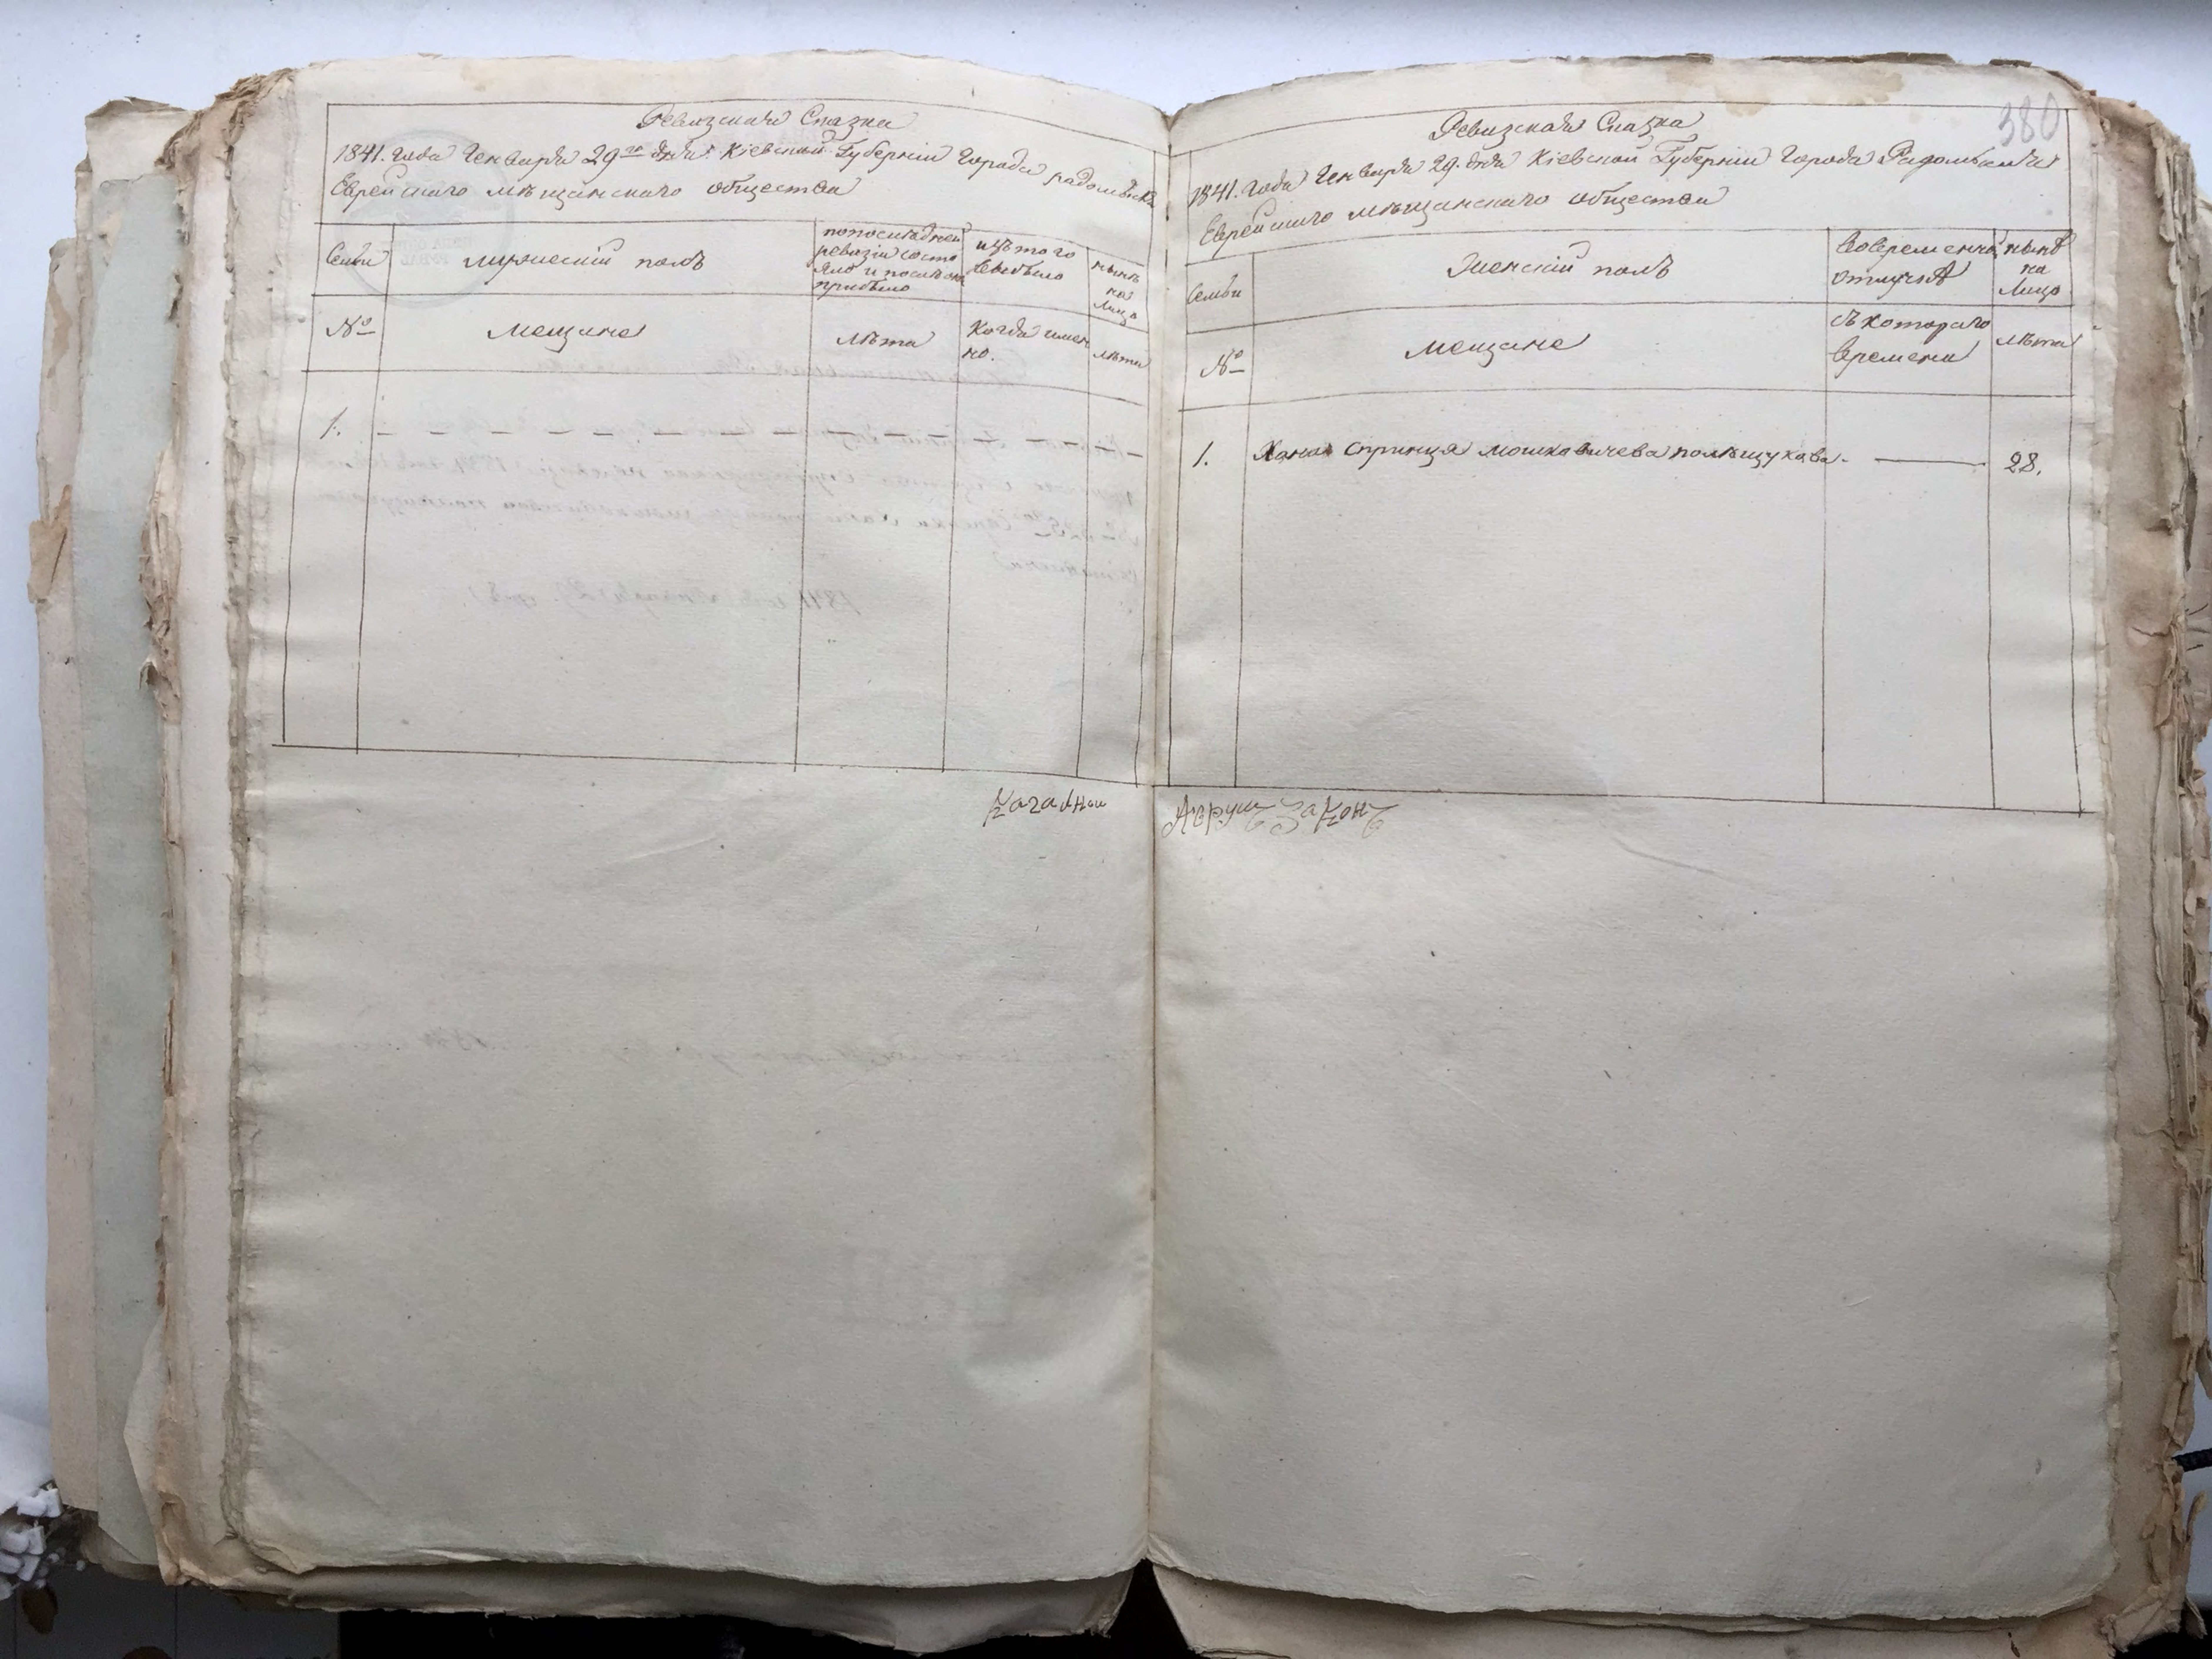 Ревизская Сказка
1841. года Генваря 29го дня Кіевской Губерніи города радомысля
Еврейскаго мѣщанскаго общества
Семьи
мужескій полъ
попослѣдней
ревизіи состо
яло и послѣ она
прибыло
изъ того
выбыло
нынѣ
на
лицо
№
мещане
лѣта
когда имен
но.
лѣта
1.
Кагальный
380
Ревизская Сказка
1841. года Генваря 29. дня Кіевской Губерніи города Радомысля
Еврейскаго мѣщанскаго общества
Семьи
Женскій полъ
вовременной
отлучкѣ
нынѣ
на
лицо
№
мещане
съ котораго
времени
лѣта
1. Хана Спринця мошковичева полѣщукова. — 28.
Авруш Закон